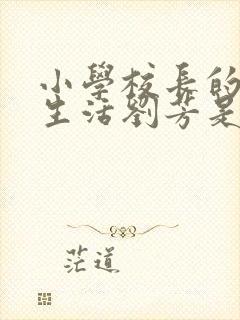 小學校長的
生活劉芳是
茫道